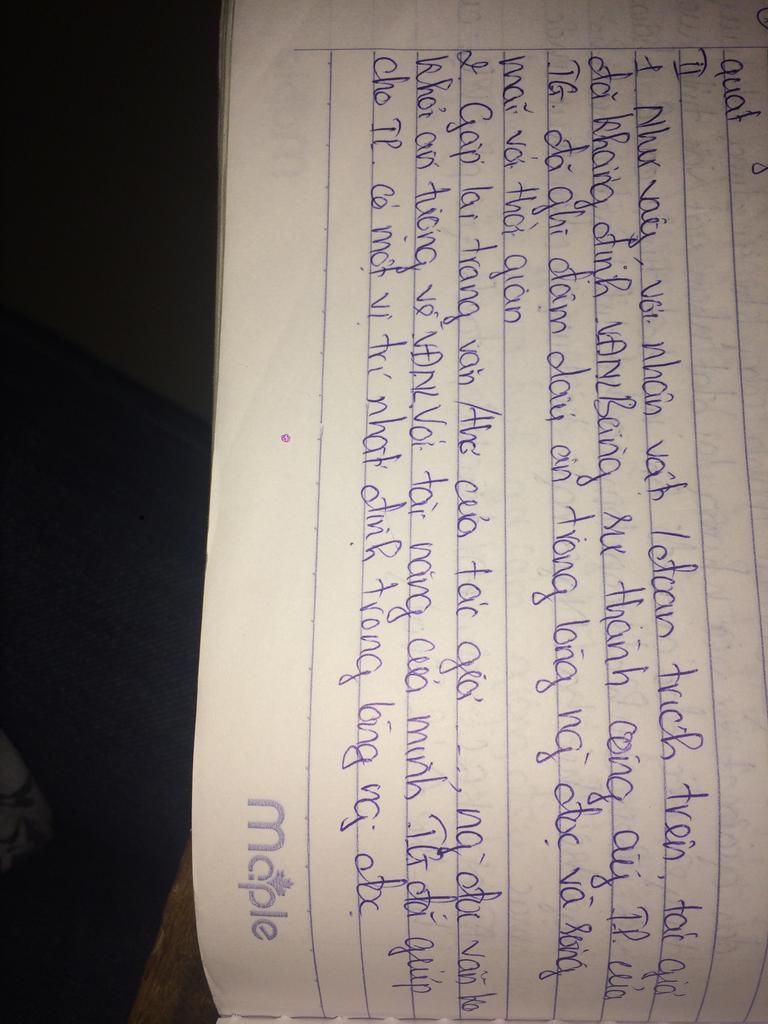 quát
II
1. Như vậy, với nhân vật / đoạn trích trên, tác giả
đã khẳng định VĐNL Bằng sự thành công ấy TP của
TG. đã ghi đậm dấu ấn trong lòng ng` đọc và sống
mãi với thời gian
2. Gấp lại trang văn / thơ của tác giả ..., ng` đọc vẫn ko
khỏi ấn tượng về VĐNL Với tài năng của mình TG đã giúp
cho TP. có một vị trí nhất định trong lòng ng` đọc
maple